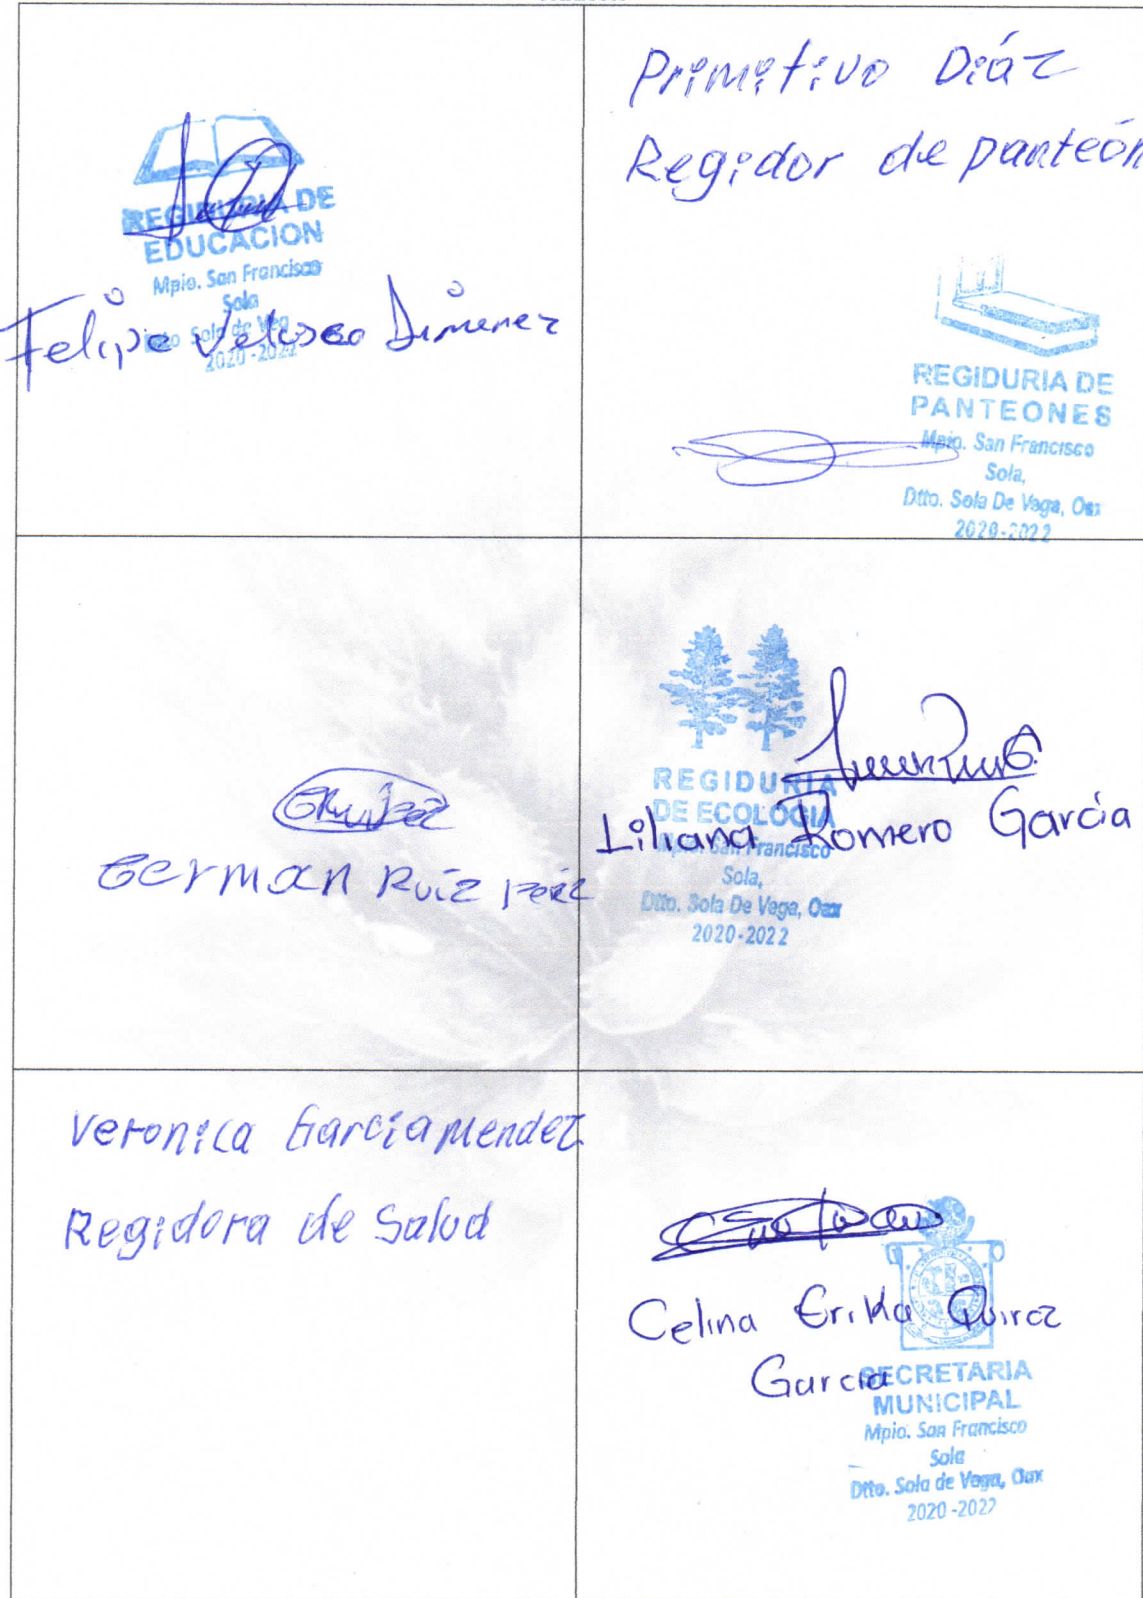 REGIDURIA DE
EDUCACION
Mpio. San Francisco
Sola
Dtto Sola de Vega
2020-2022
Felipe Velasco Jimenez
Primitivo Diáz
Regidor de panteón
REGIDURIA DE
PANTEONES
Mpio. San Francisco
Sola,
Dtto. Sola De Vega, Oax
2020-2022
German Ruíz Peréz
REGIDURIA
DE ECOLOGIA
Mpio. San Francisco
Sola,
Dtto. Sola De Vega, Oax
2020-2022
Liliana Romero García
Veronica García Mendez
Regidora de Salud
Celina Erika Quiroz
Garcia
SECRETARIA
MUNICIPAL
Mpio. San Francisco
Sola
Dtto. Sola de Vega, Oax
2020-2022